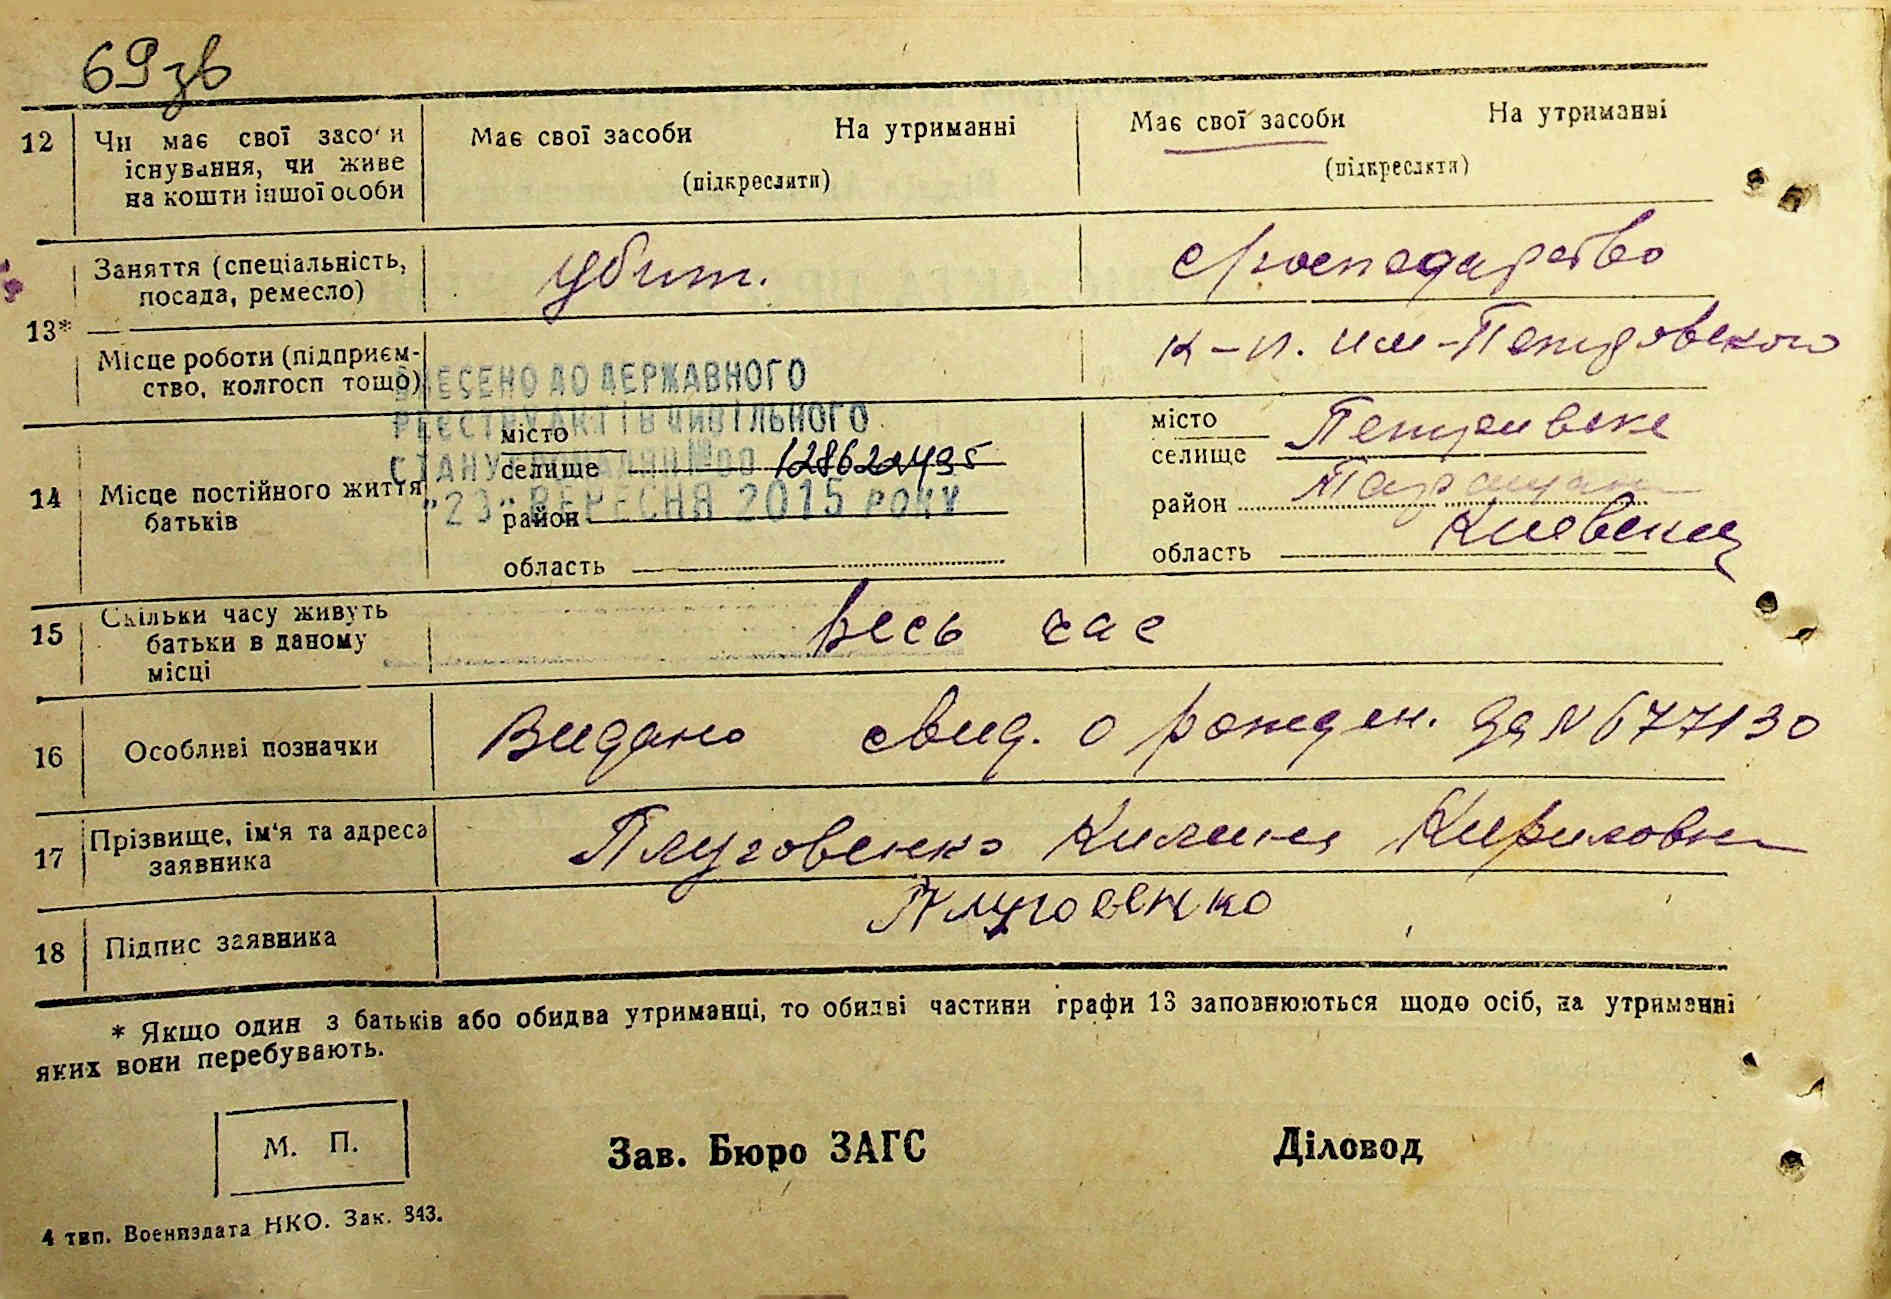 69зв
12 Чи має свої засоби Має свої засоби На утриманні Має свої засоби На утриманні
існування, чи живе (підкреслити) (підкреслити)
на кошти іншої особи
Заняття (спеціальність, убит. господарство
посада, ремесло)
13*
Місце роботи (підприєм- к-п. им-Петровского
ство, колгосп тощо)
ВНЕСЕНО ДО ДЕРЖАВНОГО
РЕЄСТРУ АКТІВ ЦИВІЛЬНОГО
СТАНУ ГРОМАДЯН №00 128622495
"23" ВЕРЕСНЯ 2015 РОКУ
14 Місце постійного життя
батьків
місто
селище
район
область
місто
селище
район
область Киевска
15 Скільки часу живуть весь час
батьки в даному
місці
16 Особливі позначки Видано свид. о рожден. за N 677130
17 Прізвище, ім'я та адреса Плуговенко Килина Кириловна
заявника
18 Підпис заявника Плуговенко
* Якщо один з батьків або обидва утриманці, то обидві частини графи 13 заповнюються щодо осіб, на утриманні
яких вони перебувають.
М. П. Зав. Бюро ЗАГС Діловод
4 тип. Воениздата НКО. Зак. 843.